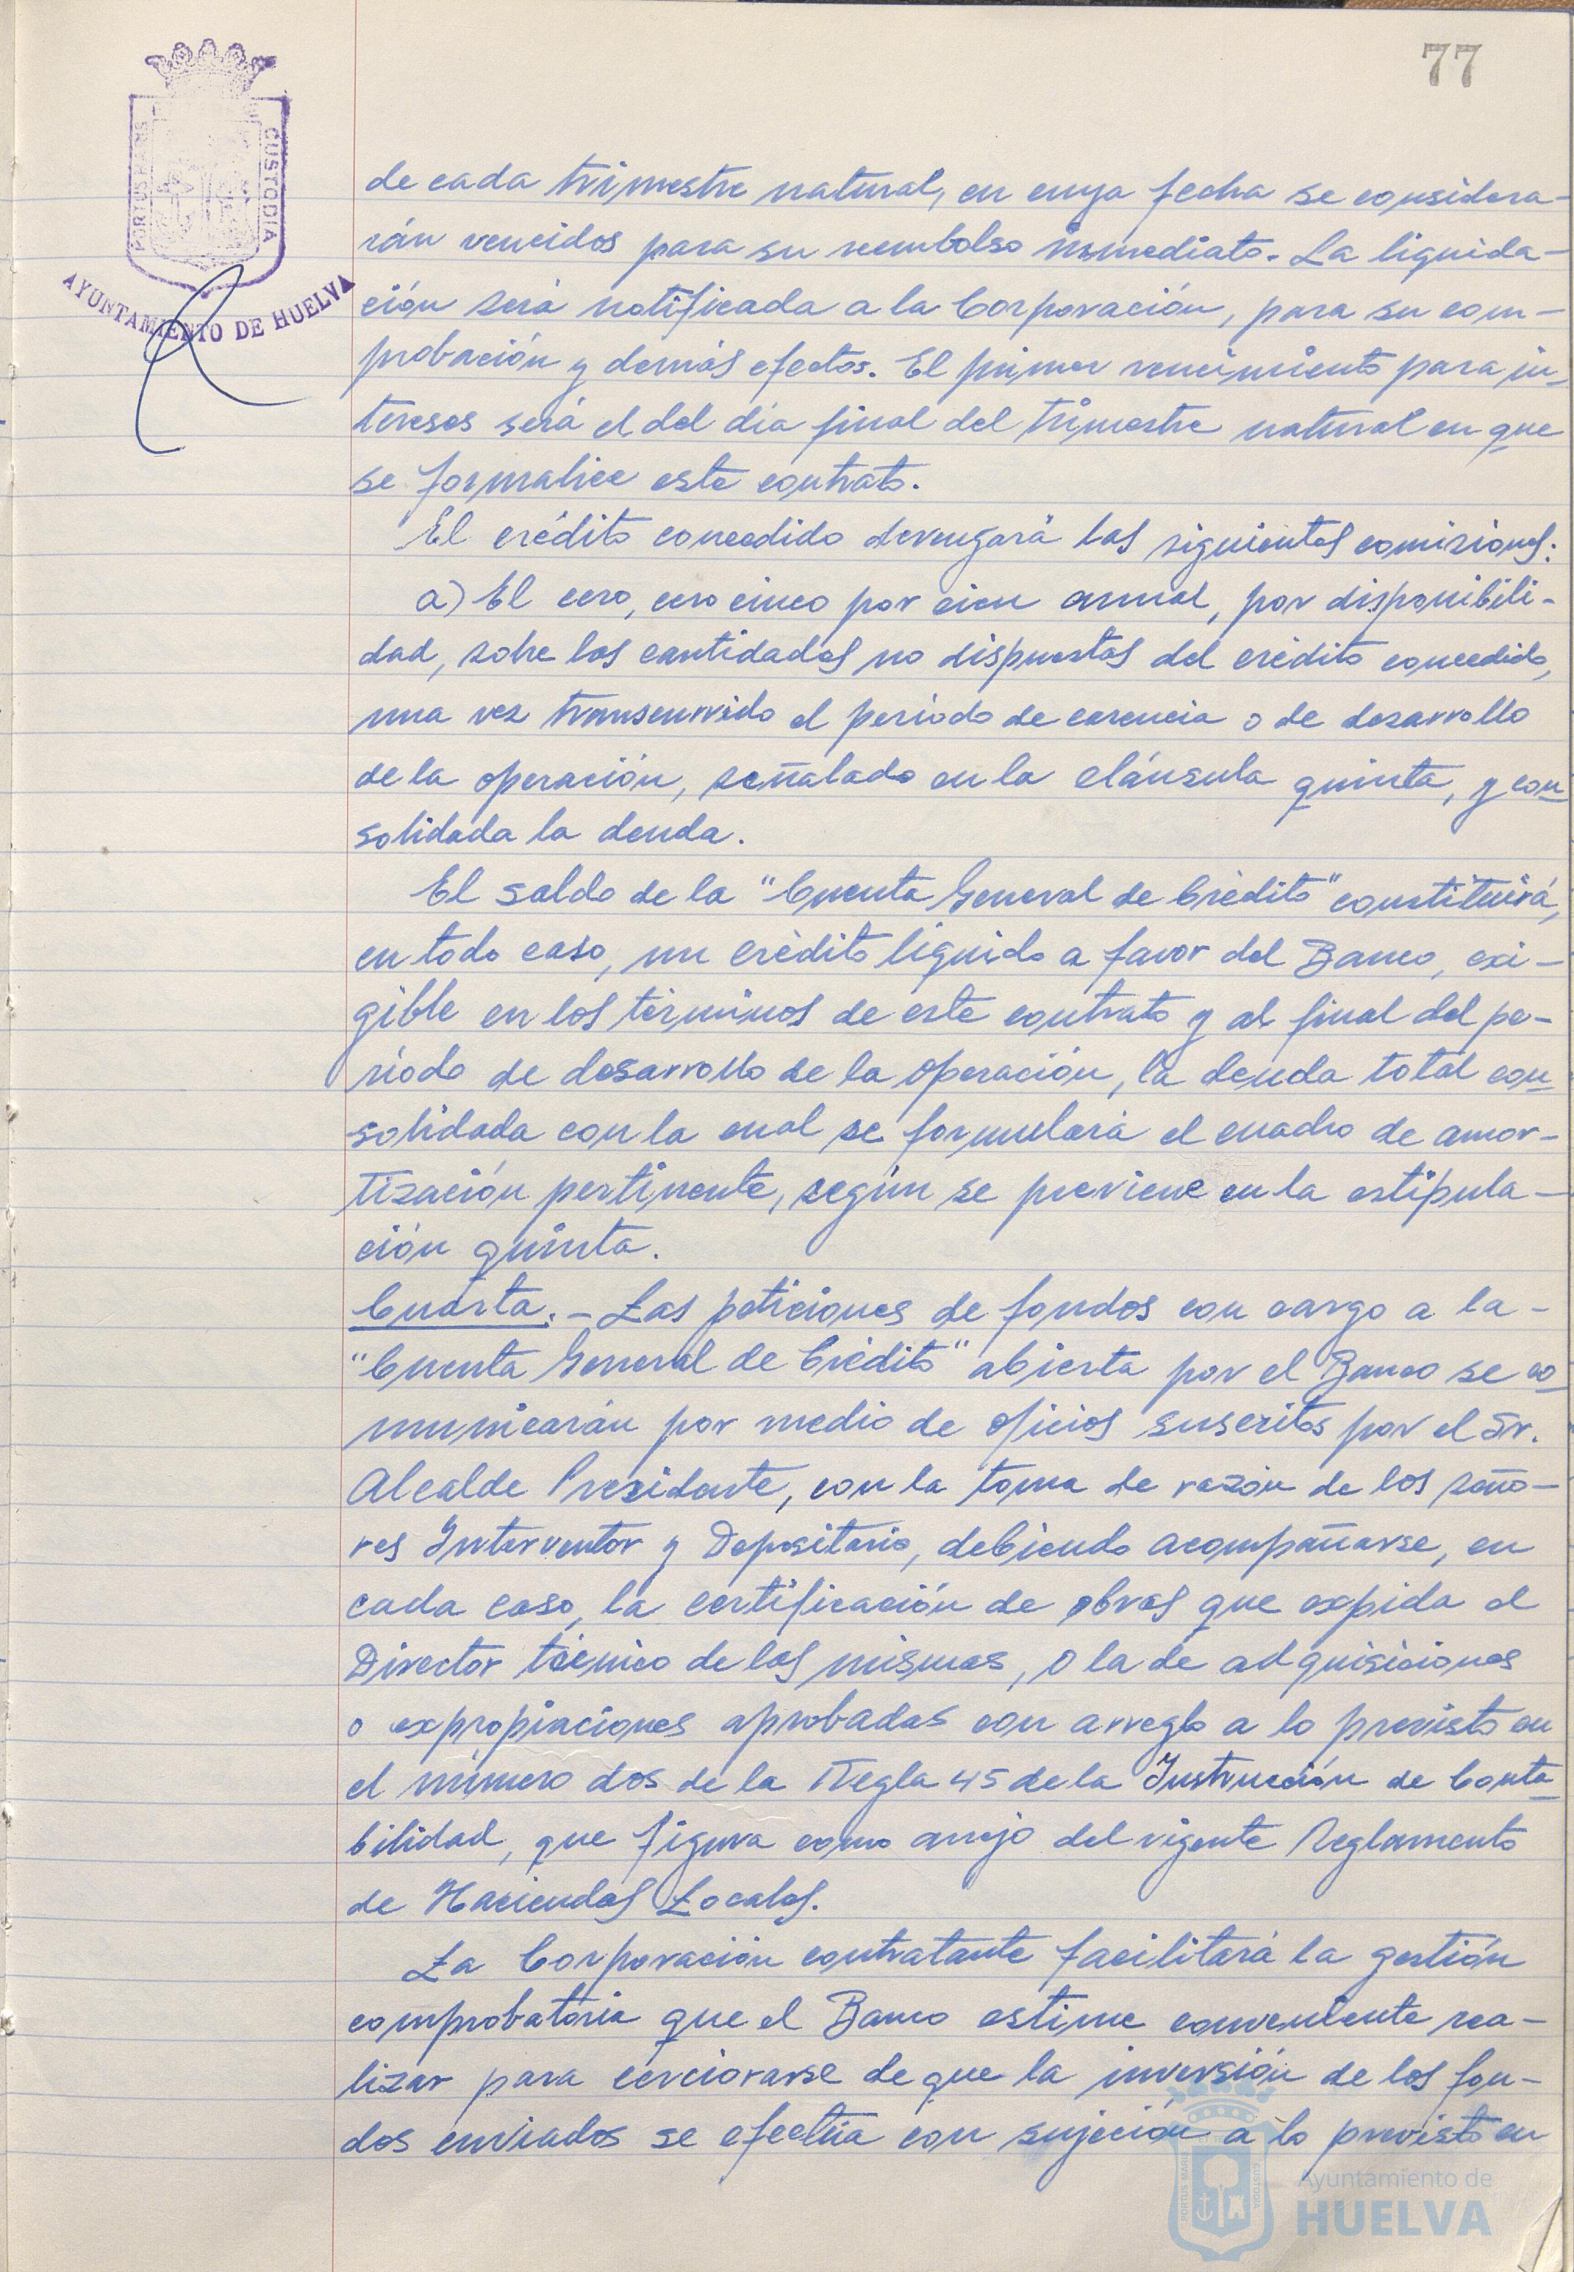 77
PORTUS MARIS
CUSTODIA
AYUNTAMIENTO DE HUELVA
de cada trimestre natural, en cuya fecha se considera-
rán vencidos para su reembolso inmediato. La liquida-
ción será notificada a la Corporación, para su com-
probación y demás efectos. El primer vencimiento para in-
tereses será el del día final del trimestre natural en que
se formalice este contrato.
El crédito concedido devengará las siguientes comisiones:
a) El cero, cero cinco por cien anual, por disponibili-
dad, sobre las cantidades no dispuestas del crédito concedido,
una vez transcurrido el período de carencia o de desarrollo
de la operación, señalado en la cláusula quinta, y con-
solidada la deuda.
El saldo de la "Cuenta General de Crédito" constituirá,
en todo caso, un crédito líquido a favor del Banco, exi-
gible en los términos de este contrato y al final del pe-
ríodo de desarrollo de la operación, la deuda total con-
solidada con la cual se formulará el cuadro de amor-
tización pertinente, según se previene en la estipula-
ción quinta.
Cuarta.- Las peticiones de fondos con cargo a la -
"Cuenta General de Crédito" abierta por el Banco se co-
municarán por medio de oficios suscritos por el Sr.
Alcalde Presidente, con la toma de razón de los seño-
res Interventor y Depositario, debiendo acompañarse, en
cada caso, la certificación de obras que expida el
Director técnico de las mismas, o la de adquisiciones
o expropiaciones aprobadas con arreglo a lo previsto en
el número dos de la Regla 45 de la Instrucción de Conta-
bilidad, que figura como anejo del vigente Reglamento
de Haciendas Locales.
La Corporación contratante facilitará la gestión
comprobatoria que el Banco estime conveniente rea-
lizar para cerciorarse de que la inversión de los fon-
dos enviados se efectúa con sujeción a lo previsto en
Ayuntamiento de
HUELVA